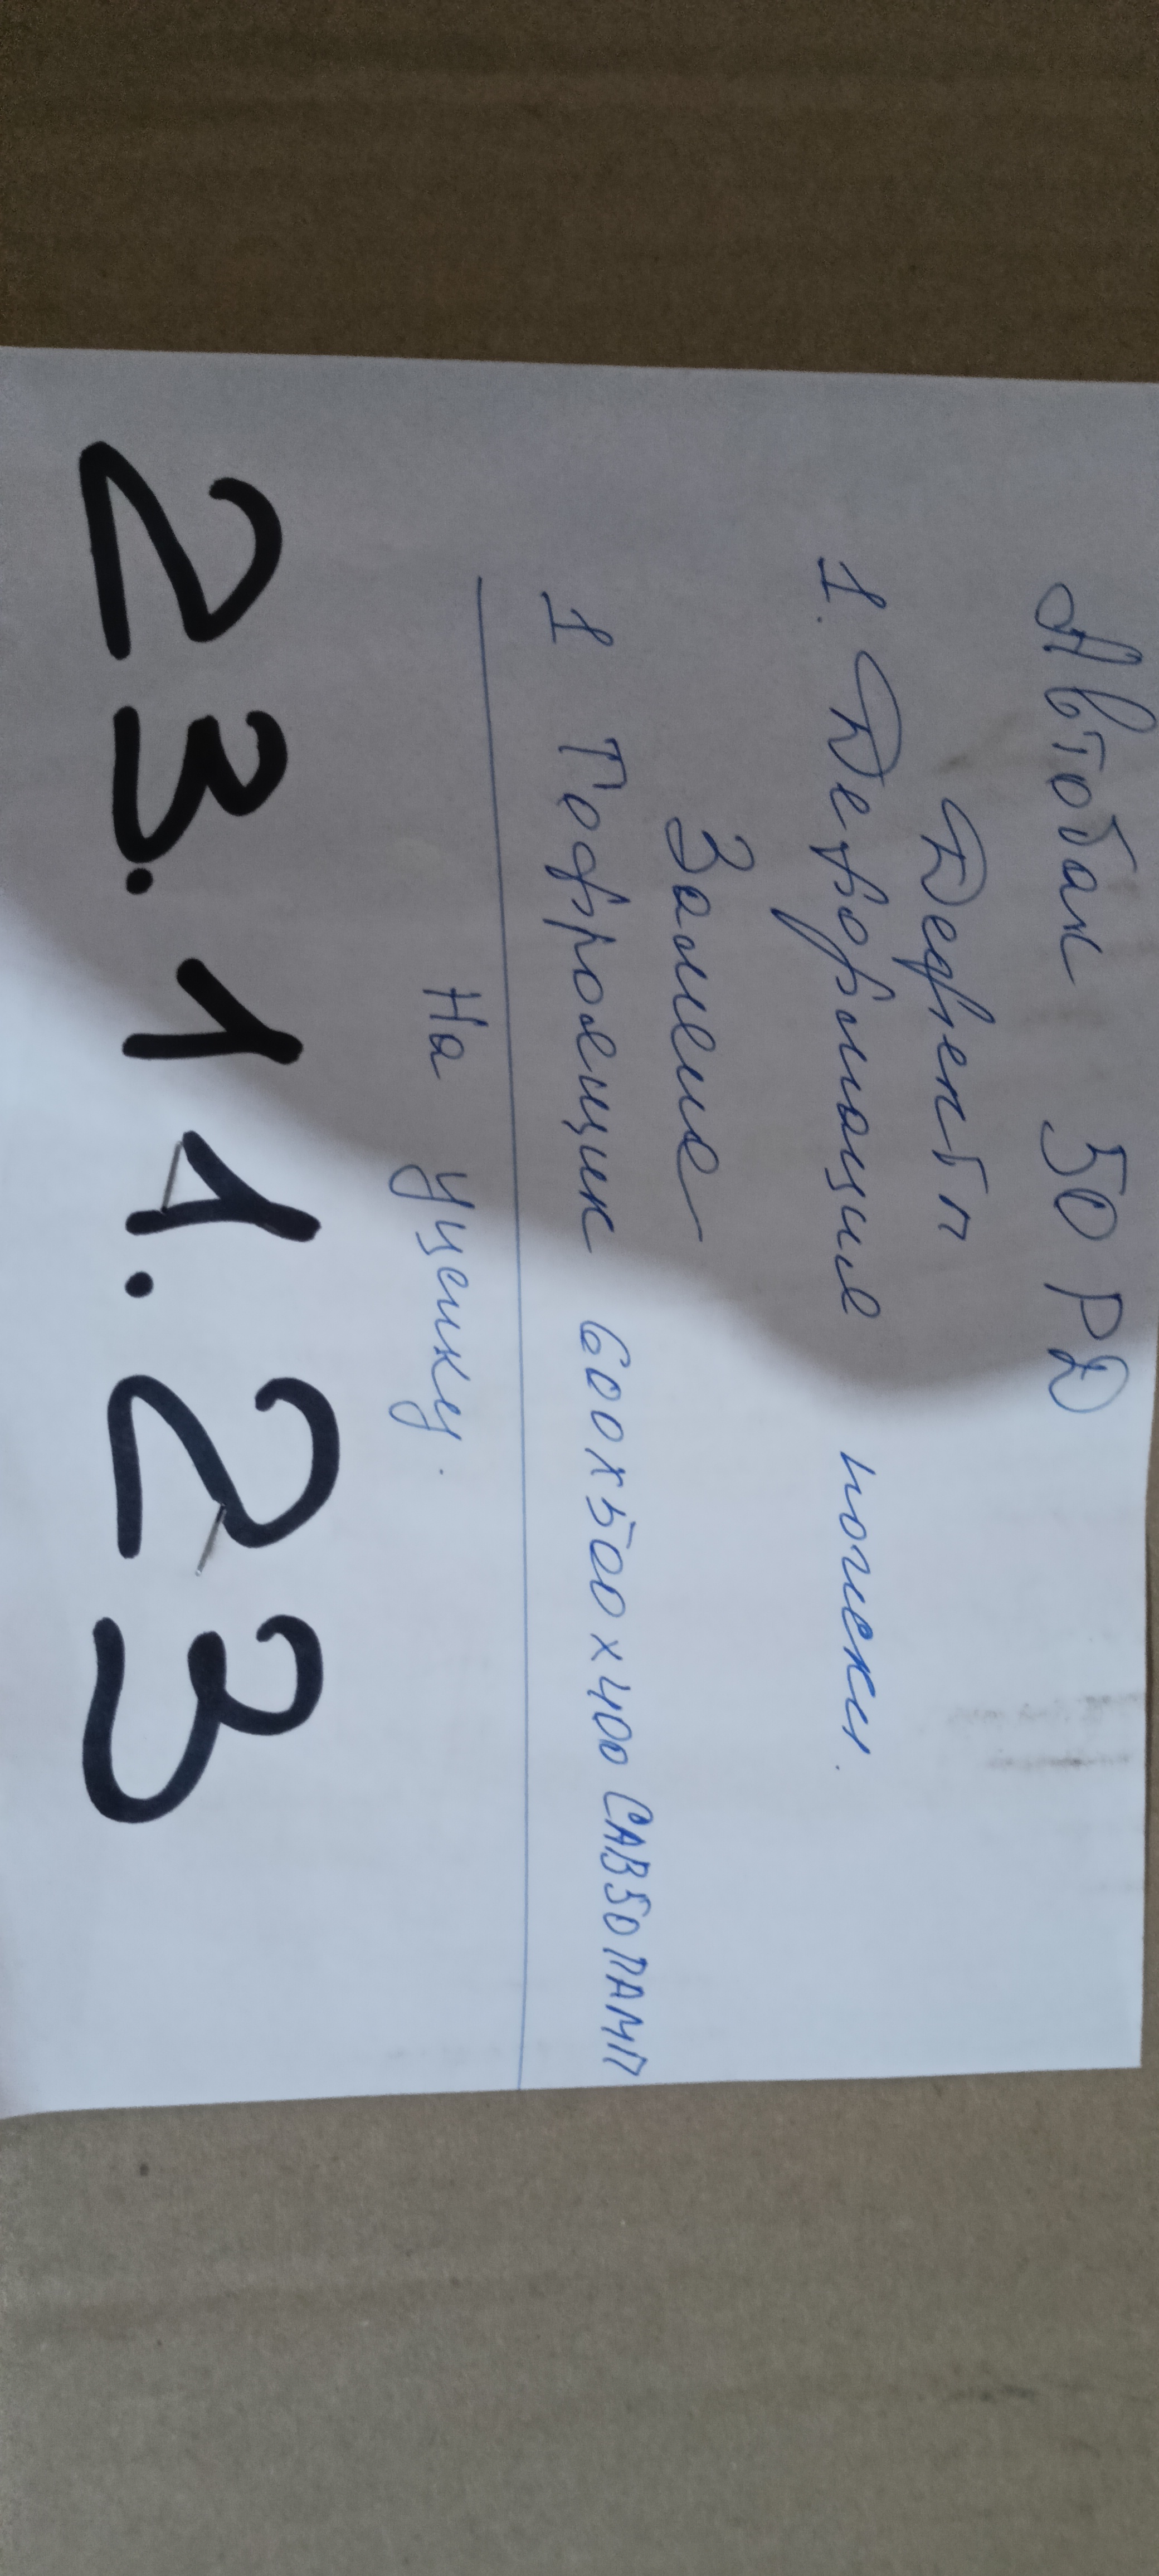 Автобак 50 РД
Дефекты
1. Деформация ножек.
Замена
1 Гофроящик 600х500х400 САВ50ПАМП
На уценку.
23.11.23